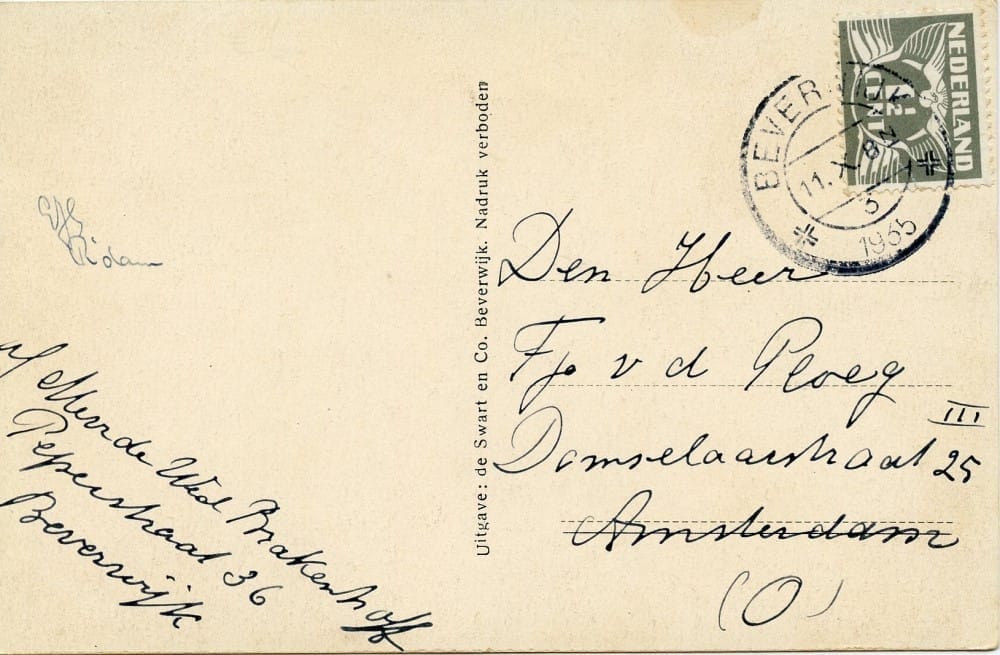 NEDERLAND
1½ CENT
BEVERWIJK
11.X.8 N
5
1935
Den Heer
Fp v d Ploeg
III
Domselaarstraat 25
Amsterdam
(O)
Uitgave: de Swart en Co. Beverwijk. Nadruk verboden
R'dam
Mevr de Wed Brakenhoff
Peperstraat 36
Beverwijk